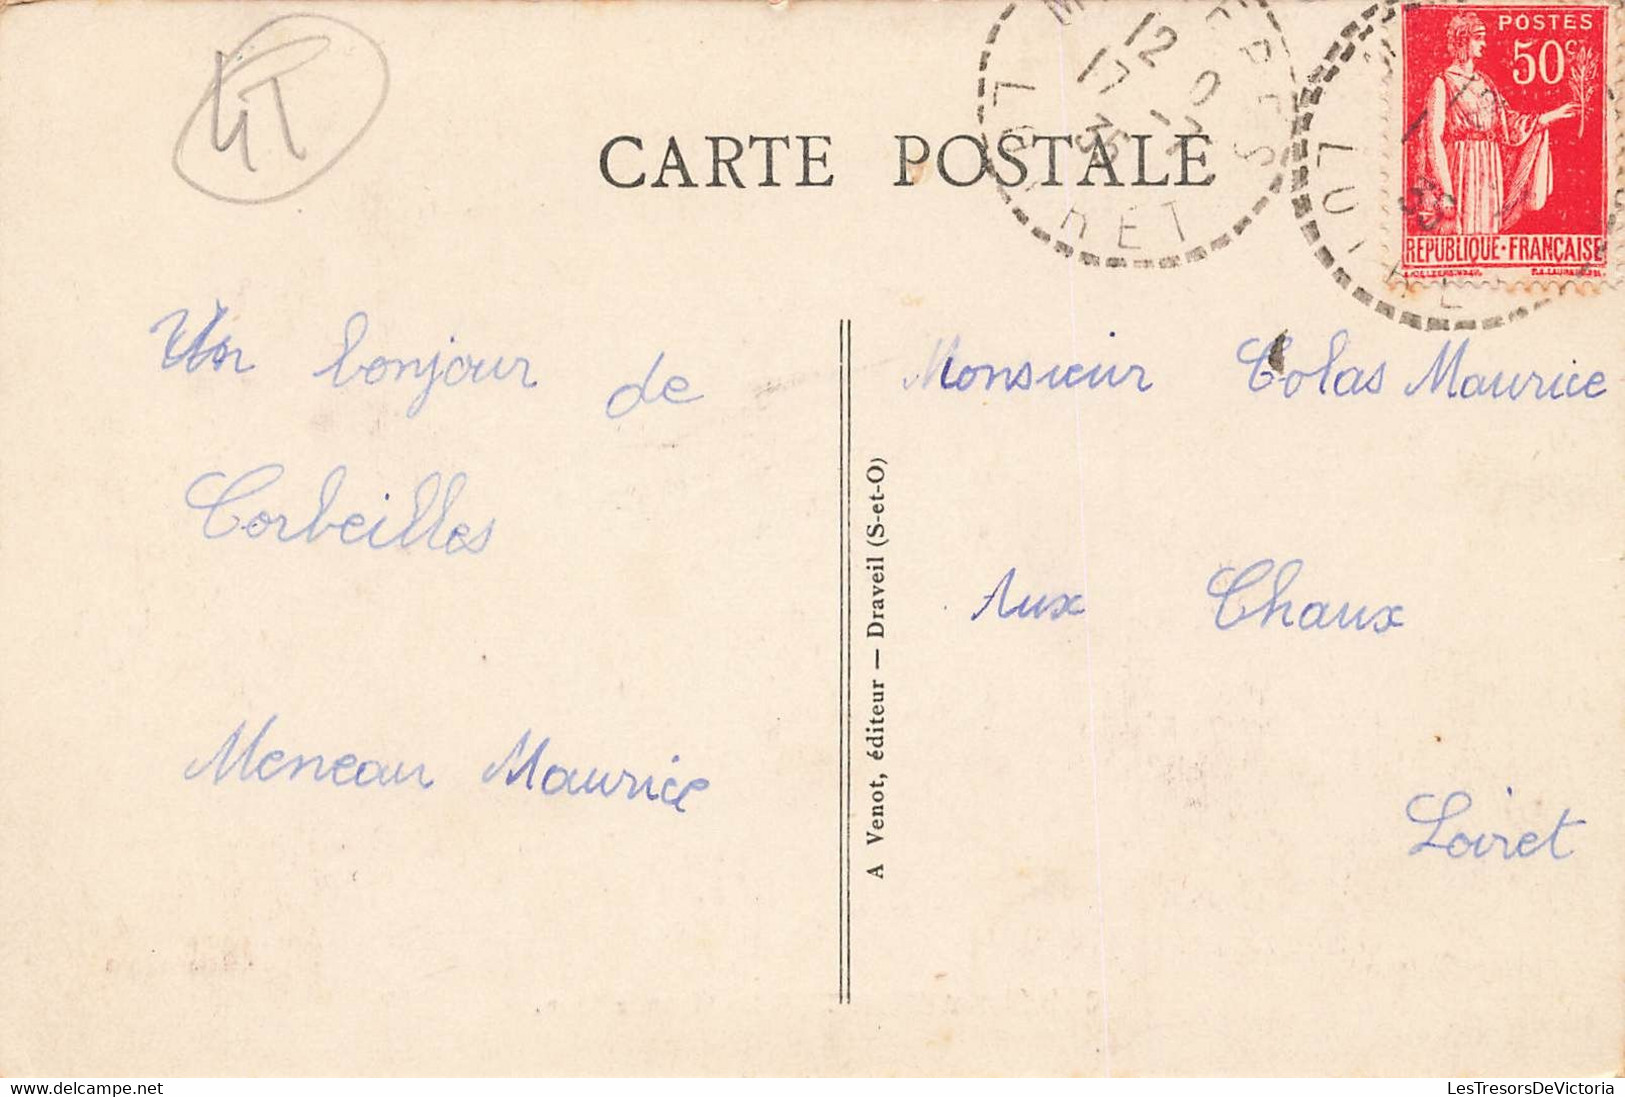 CARTE POSTALE
12 0
17 - 7
35
LOIRET
POSTES
50c
35
REPUBLIQUE·FRANÇAISE
Un bonjour de
Corbeilles
Meneau Maurice
A Venot, éditeur — Draveil (S-et-O)
Monsieur Colas Maurice
Aux Chaux
Loiret
delcampe.net
LesTresorsDeVictoria